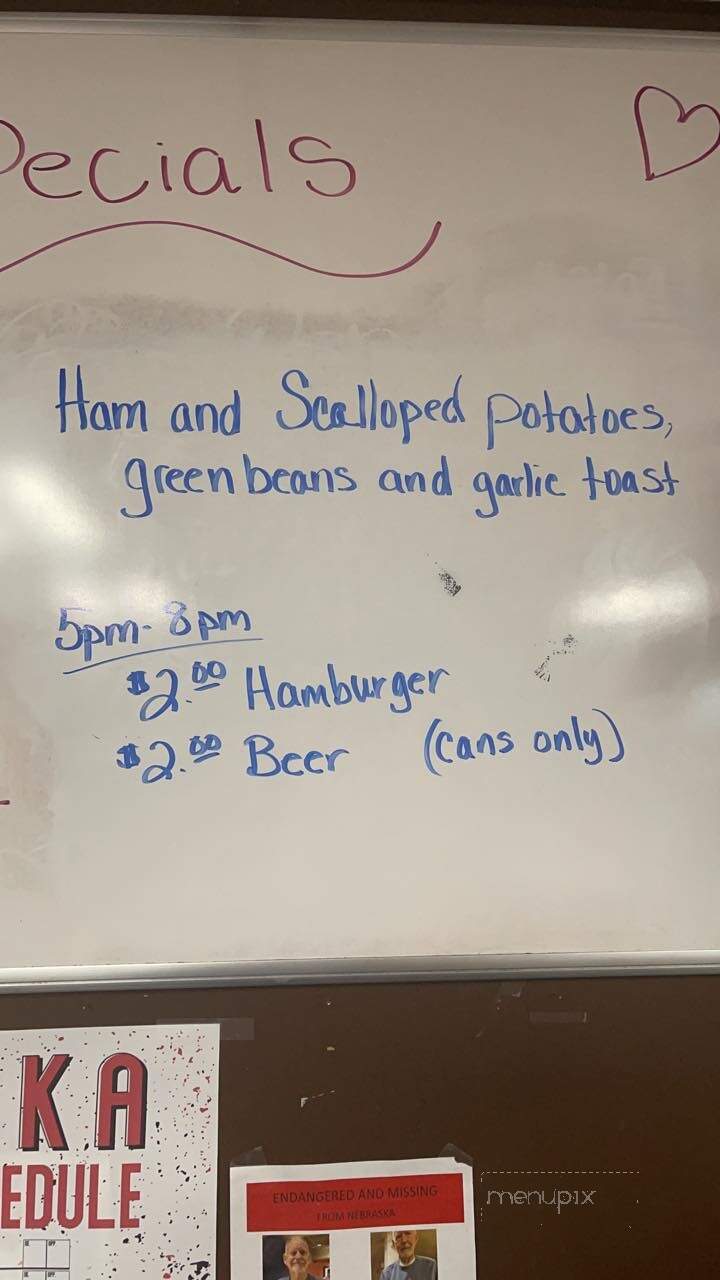 pecials
Ham and Scalloped potatoes,
green beans and garlic toast
5pm - 8pm
$2.00 Hamburger
$2.00 Beer (cans only)
KA
EDULE
ENDANGERED AND MISSING
FROM NEBRASKA
menupix